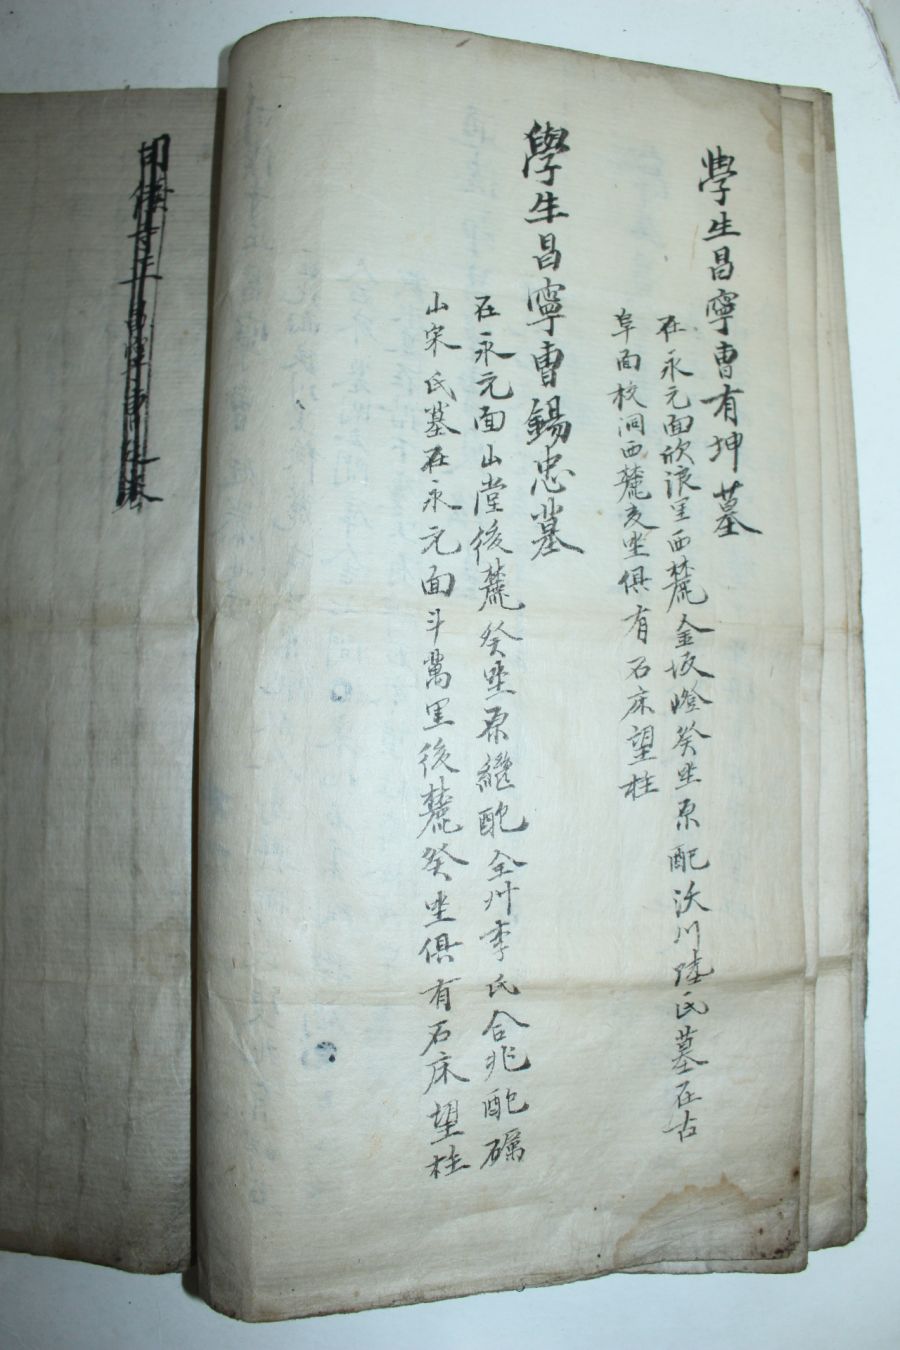 學生昌寧曺有坤墓
在永元面欣浪里西麓金坂嶝癸坐原配沃川陸氏墓在古
阜面校洞西麓亥坐俱有石床望柱
學生昌寧曺錫忠墓
在永元面山堂後麓癸坐原繼配全州李氏合兆配礪
山宋氏墓在永元面斗萬里後麓癸坐俱有石床望柱
寺正昌寧曺